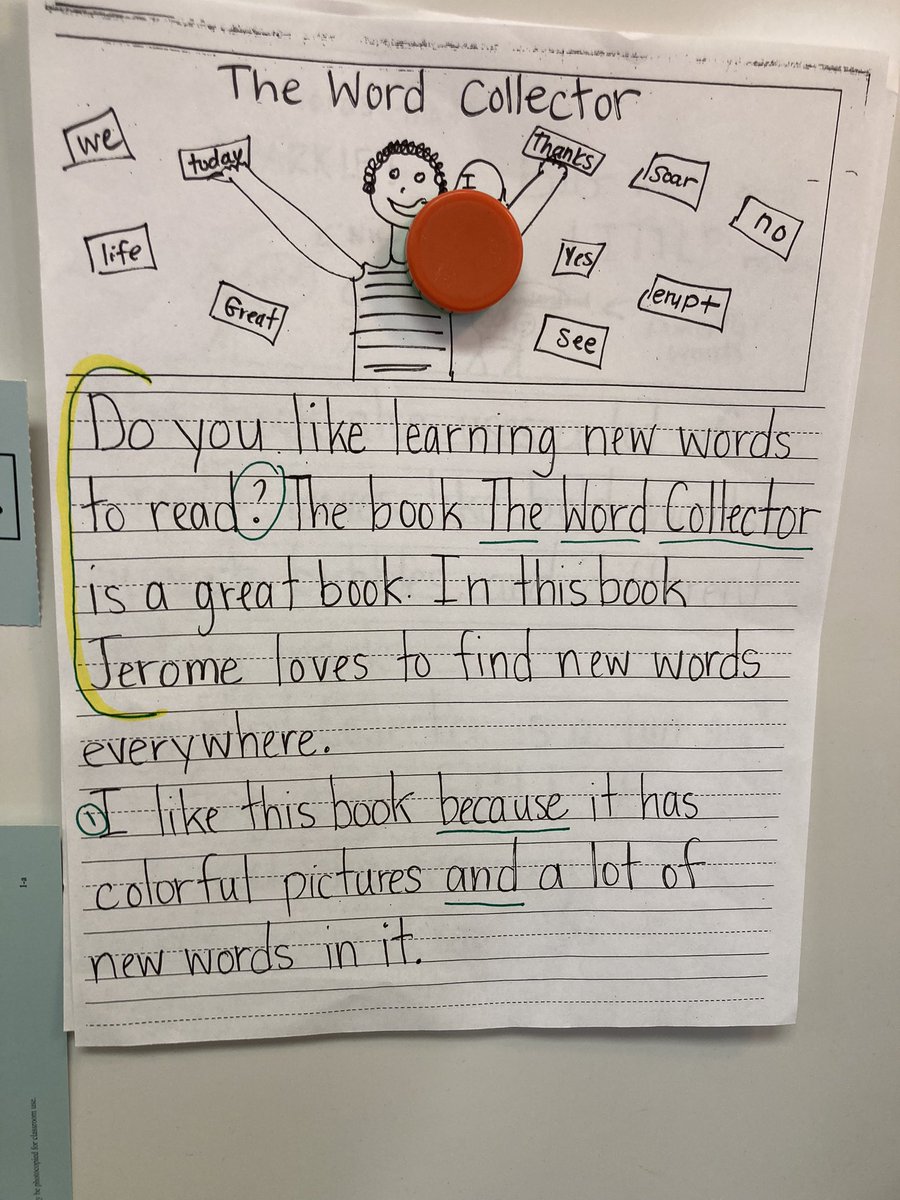 The Word Collector
we
today
I
Thanks
Soar
no
life
Yes
Great
erupt
See
Do you like learning new words
to read? The book The Word Collector
is a great book. In this book
Jerome loves to find new words
everywhere.
1 I like this book because it has
colorful pictures and a lot of
new words in it.
1-a
be photocopied for classroom use.